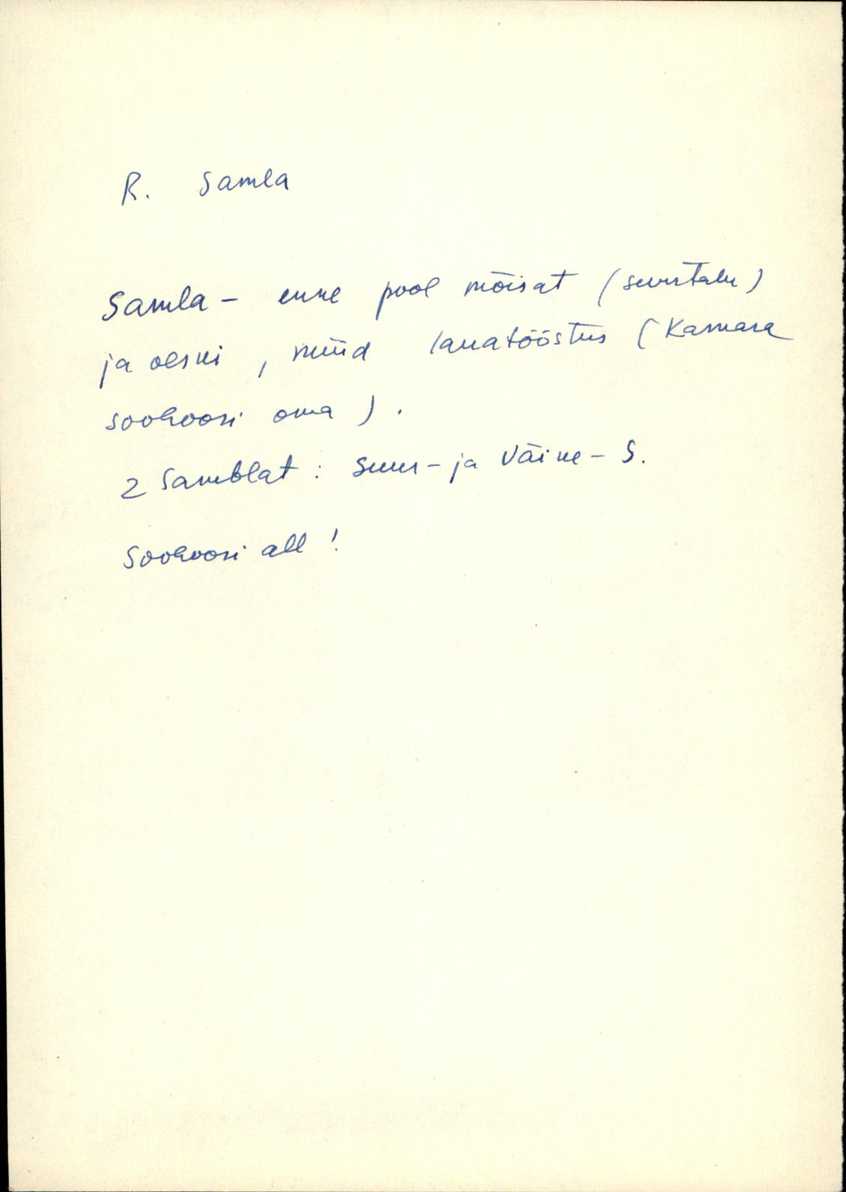 R. Samla
Samla – enne pool mõisat (suurtalu)
ja veski, nüüd lauatööstus (Kamara
sovhoosi oma).
2 Samblat: Suur- ja Väike-S.
Sovhoosi all!